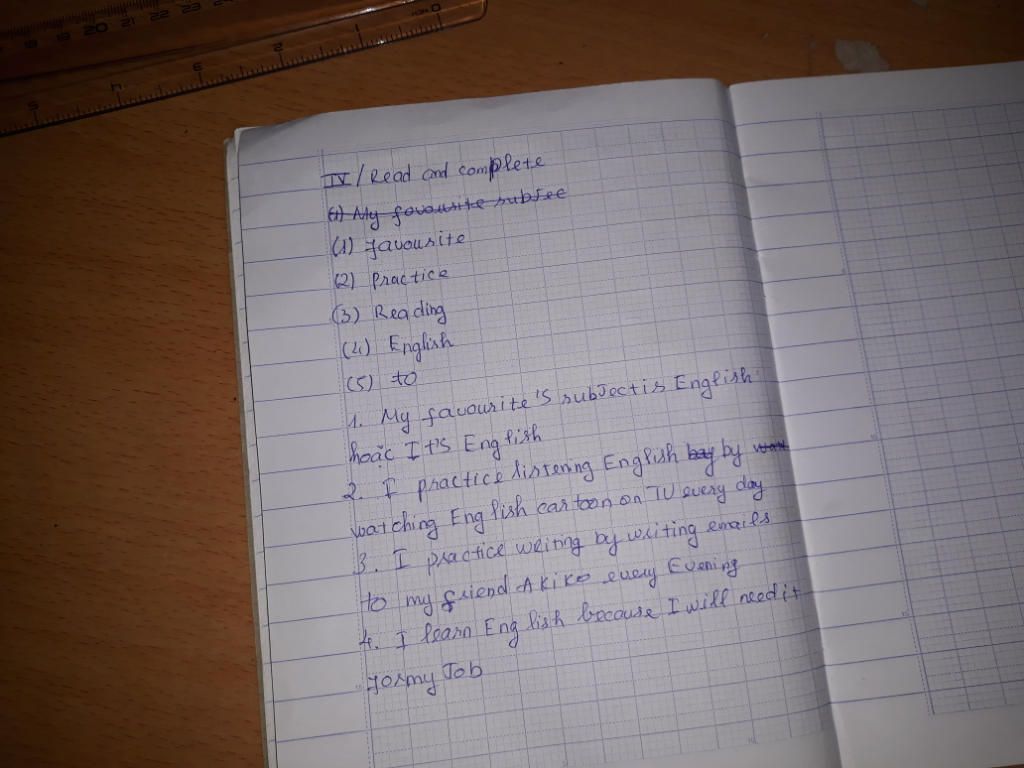 IV/ Read and complete
(1) My favourite subjec
(1) favourite
(2) Practice
(3) Reading
(4) English
(5) to
1. My favourite's subject is English
hoặc It's English
2. I practice listening English bay by
watching English cartoon on TV every day
3. I practice writing by writing emails
to my friend Akiko every Evening
4. I learn English because I will need it
for my Job
0 1 2 3 4 5
18 19 20 21 22 23 24